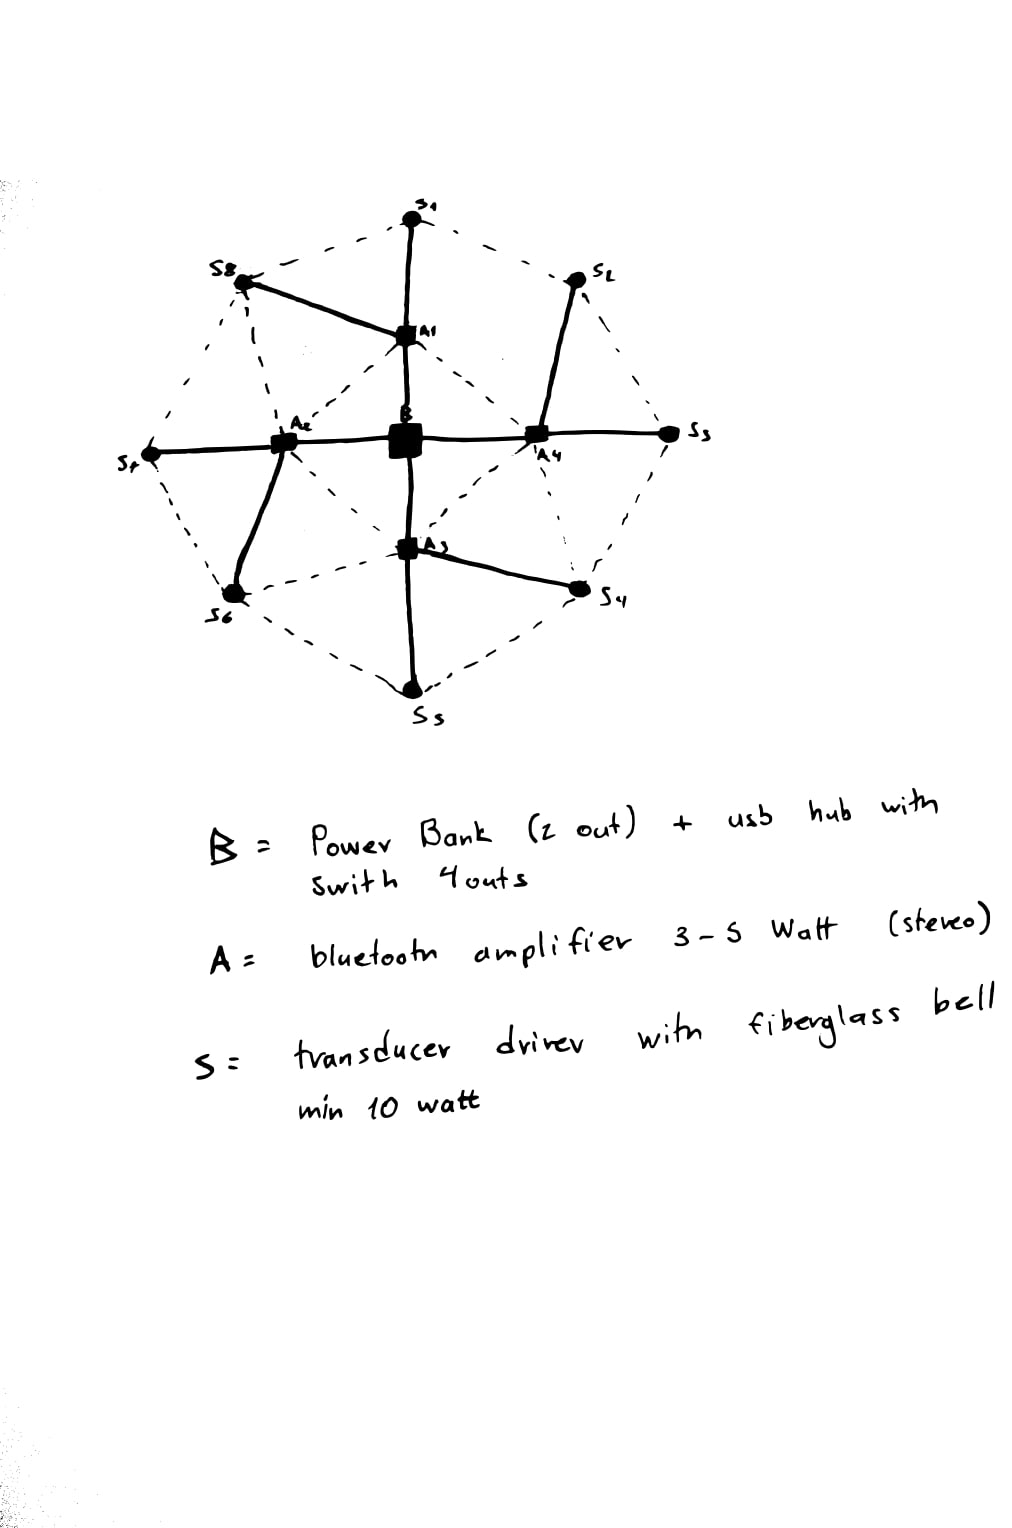 S1
S8
S2
A1
B
A2
S3
A4
S7
A3
S4
S6
S5
B = Power Bank (2 out) + usb hub with
swith 4 outs
A = bluetooth amplifier 3-5 Watt (stereo)
S = transducer driver with fiberglass bell
min 10 watt